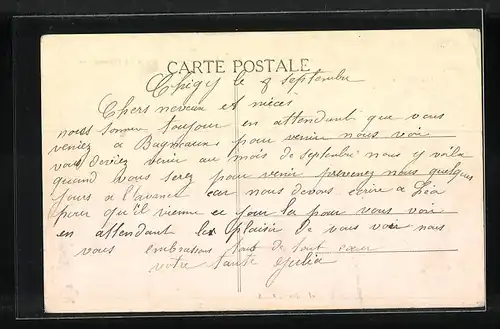 CARTE POSTALE
Chigy le 8 septembre
Chers neveux et nièces
nous sommes toujour en attendant que vous
veniez a pour venir nous voir
vous deviez venir au mois de septembre nous y voila
quand vous serez pour venir prevenez nous quelques
jours a l'avance car nous devons écrire a Léa
pour qu'il vienne ce jour la pour vous voir
en attendant le plaisir de vous voir nous
vous embrassons tous de tout cœur
votre tante Julia